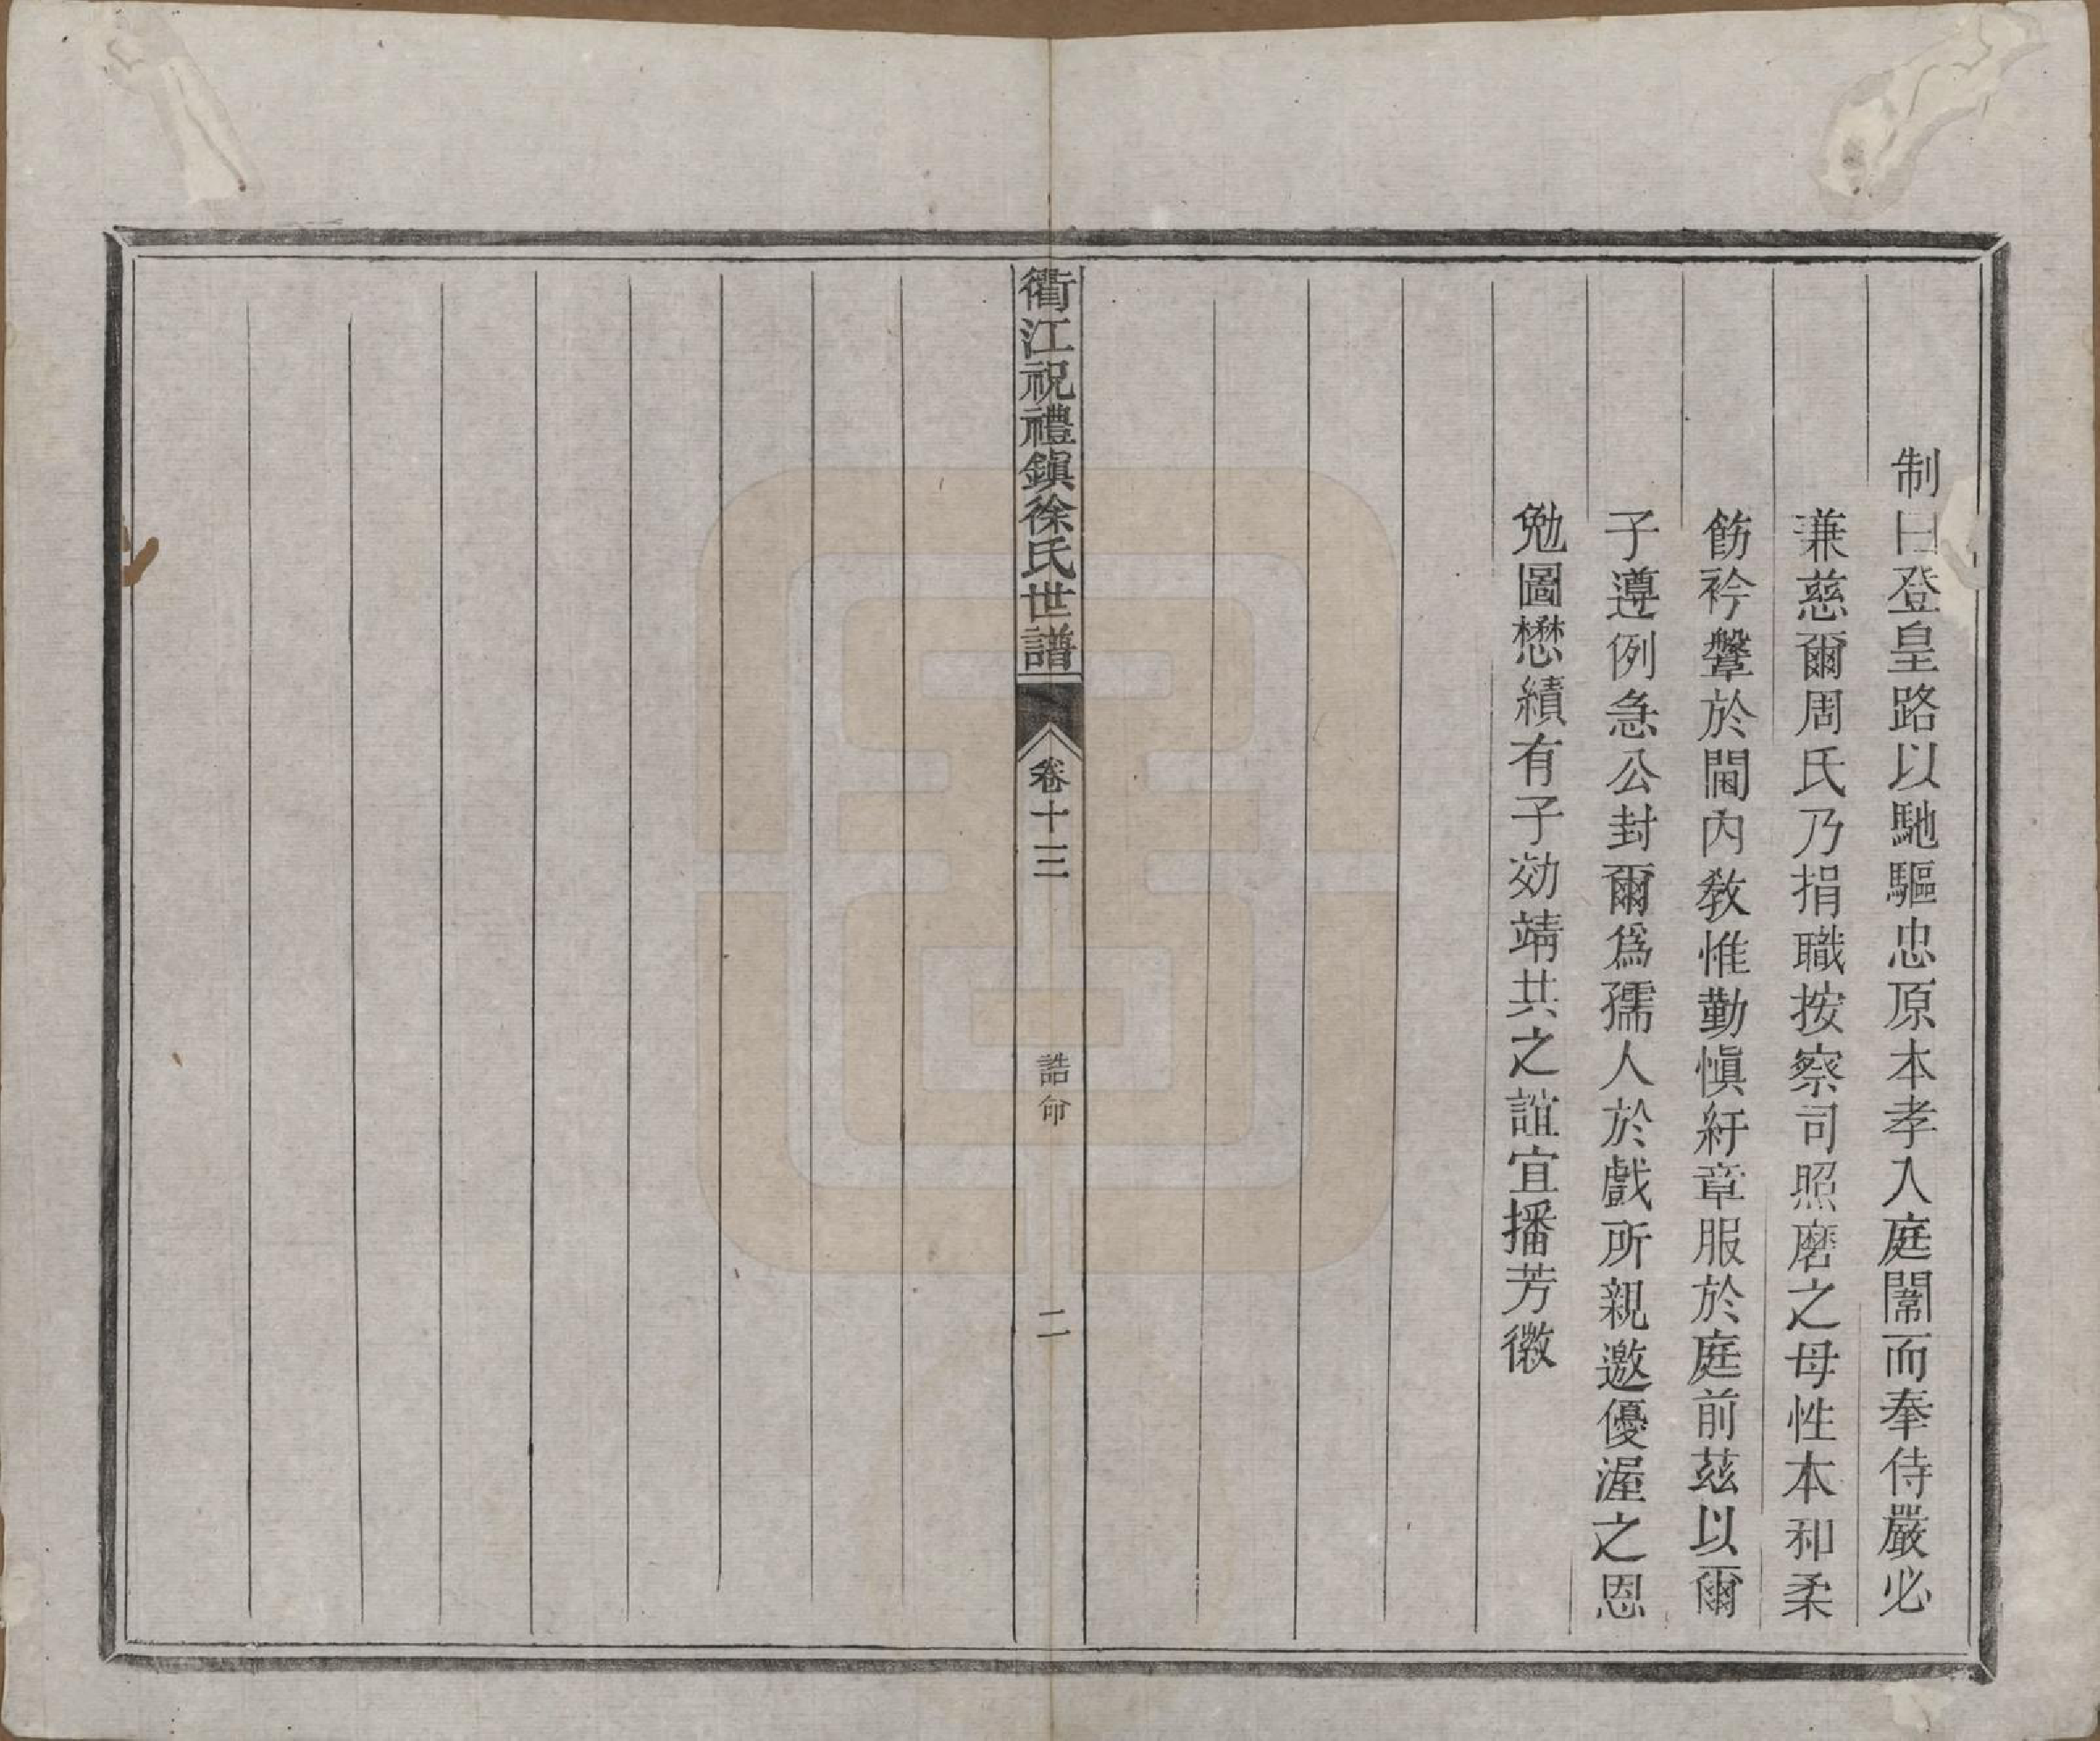 制曰登皇路以馳驅忠原本孝入庭闈而奉侍嚴必
兼慈爾周氏乃捐職按察司照磨之母性本和柔
飭衿鞶於閫內敎惟勤愼紆章服於庭前茲以爾
子遵例急公封爾爲孺人於戲所親邀優渥之恩
勉圖懋績有子効靖共之誼宜播芳徽
衢江祝禮鎭徐氏世譜
卷十三
誥命
二